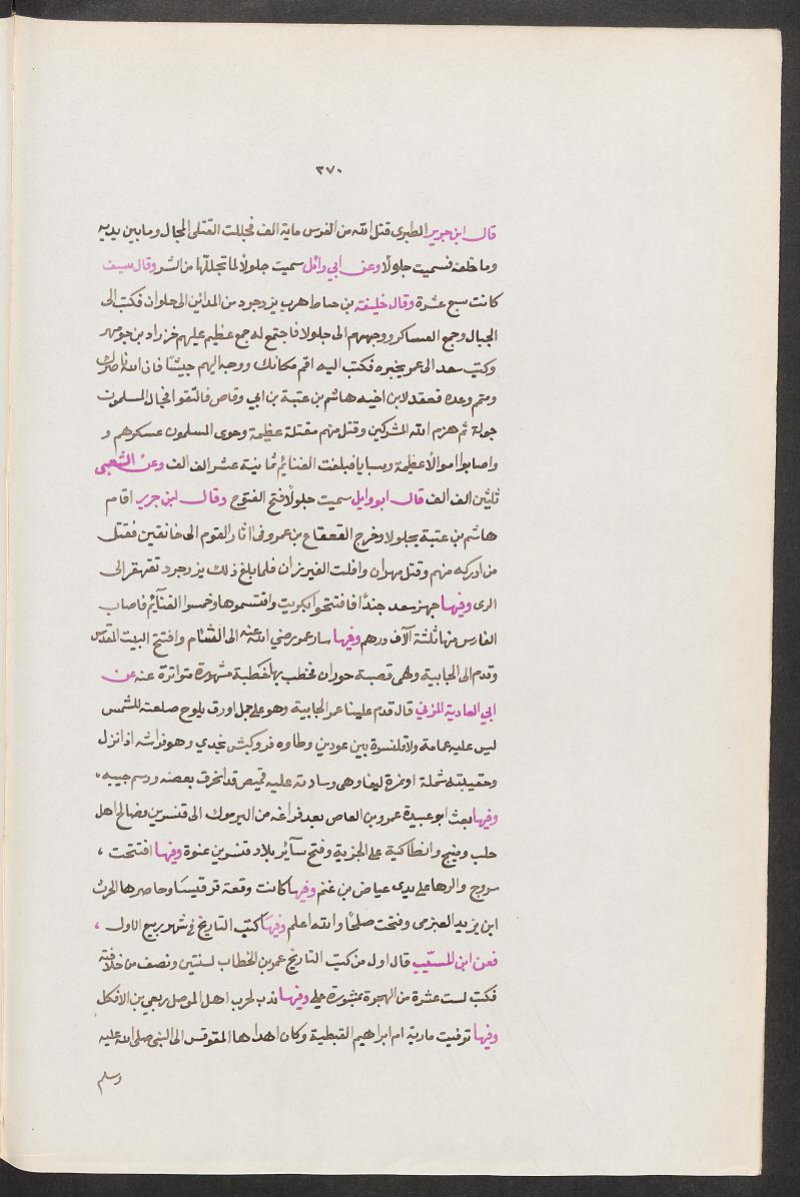 ٣٧٠
قال ابن جرير الطبرى قتل الله من الفرس ماية الف فجللت القتلى المجال وما بين يديه
وما خلفه فسميت جلولا وعن ابي وائل سميت جلولا لما تجللها من الشر وقال سيف
كانت سبع عشرة وقال خليفة بن حياط هرب يزدجرد من المدائن الى حلوان فكتب الى
الجبال وجمع العساكر ووجههم الى جلولا فاجتمع له جمع عظيم عليهم خرزاد بن جومهر
وكتب سعد الى عمر يخبره فكتب اليه اقم مكانك ووجه اليهم جيشا فان الله ناصرك
ومتم وعده فعقد لابن اخيه هاشم بن عتبة بن ابي وقاص فالتقوا فجال المسلمون
جولة ثم هزم الله المشركين وقتل منهم مقتلة عظيمة وحوى المسلمون عسكرهم و
واصابوا اموالا عظيمة وسبايا فبلغت الغنائم ثمانية عشر الف الف وعن الشعبى
ثلثين الف الف قال ابو وايل سميت جلولا فتح الفتوح وقال ابن جرير اقام
هاشم بن عتبة بجلولا وخرج القعقاع بن عمرو فى اثار القوم الى خانقين فقتل
من ادركه منهم وقتل مهران وافلت الفيرزان فلما بلغ ذلك يزدجرد تقهقر الى
الرى وفيها جهز سعد جندا فافتتحوا تكريت واقتسموها وخمسوا الغنآئم فاصاب
الفارس منها ثلثة آلاف درهم وفيها سار عمر رضي الله عنه الى الشام وافتتح البيت المقدس
وقدم الى الجابية وهى قصبة حوران فخطب بها خطبة مشهورة متواترة عنه عن
ابي العادية المزني قال قدم علينا عمر الجابية وهو على جمل اورق يلوح صلعته للشمس
ليس عليه عمامة ولا قلنسوة بين عودين وطاوه فرو كبش نجدي وهو فراشه اذا نزل
وحقيبته شملة او نمرة ليفا وهى وسادته عليه قميص قد انخرق بعضه ودسم جيبه
وفيها بعث ابو عبيدة عمرو بن العاص بعد فراغه من اليرموك الى قنسرين فصالح اهل
حلب ومنبج وانطاكية على الجزية وفتح سآئر بلاد قنسرين عنوة وفيها افتتحت ،
سروج والرها على يدى عياض بن غنم وفيها كانت وقعة قرقيسا وحاصرها الحرث
ابن يزيد العبزمى وفتحت صلحا والله اعلم وفيها كتب التاريخ في شهر ربيع الاول ،
فعن ابن المسيب قال اول من كتب التاريخ عمر بن الخطاب لسنتين ونصف من خلافته
فكتب لست عشرة من الهجرة بمشورة على وفيها ندب لحرب اهل الموصل ربعي بن الافكل
وفيها توفيت مارية ام ابراهيم القبطية وكان اهداها المقوقس الى النبى صلى الله عليه
وسلم